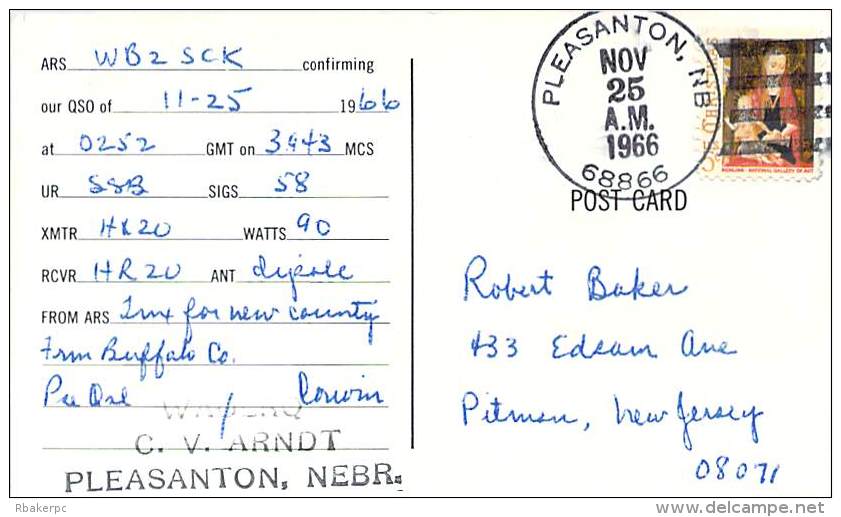 ARS WB2SCK confirming
our QSO of 11-25 1966
at 0252 GMT on 3943 MCS
UR SSB SIGS 58
XMTR HX20 WATTS 90
RCVR HR20 ANT dipole
FROM ARS Tnx for new county
Frm Buffalo Co.
Pse Qsl Corwin
C. V. ARNDT
PLEASANTON, NEBR.
PLEASANTON, NB
NOV
25
A.M.
1966
68866
POST CARD
Robert Baker
433 Edsam Ave
Pitman, New Jersey
08071
Rbakerpc
www.delcampe.net